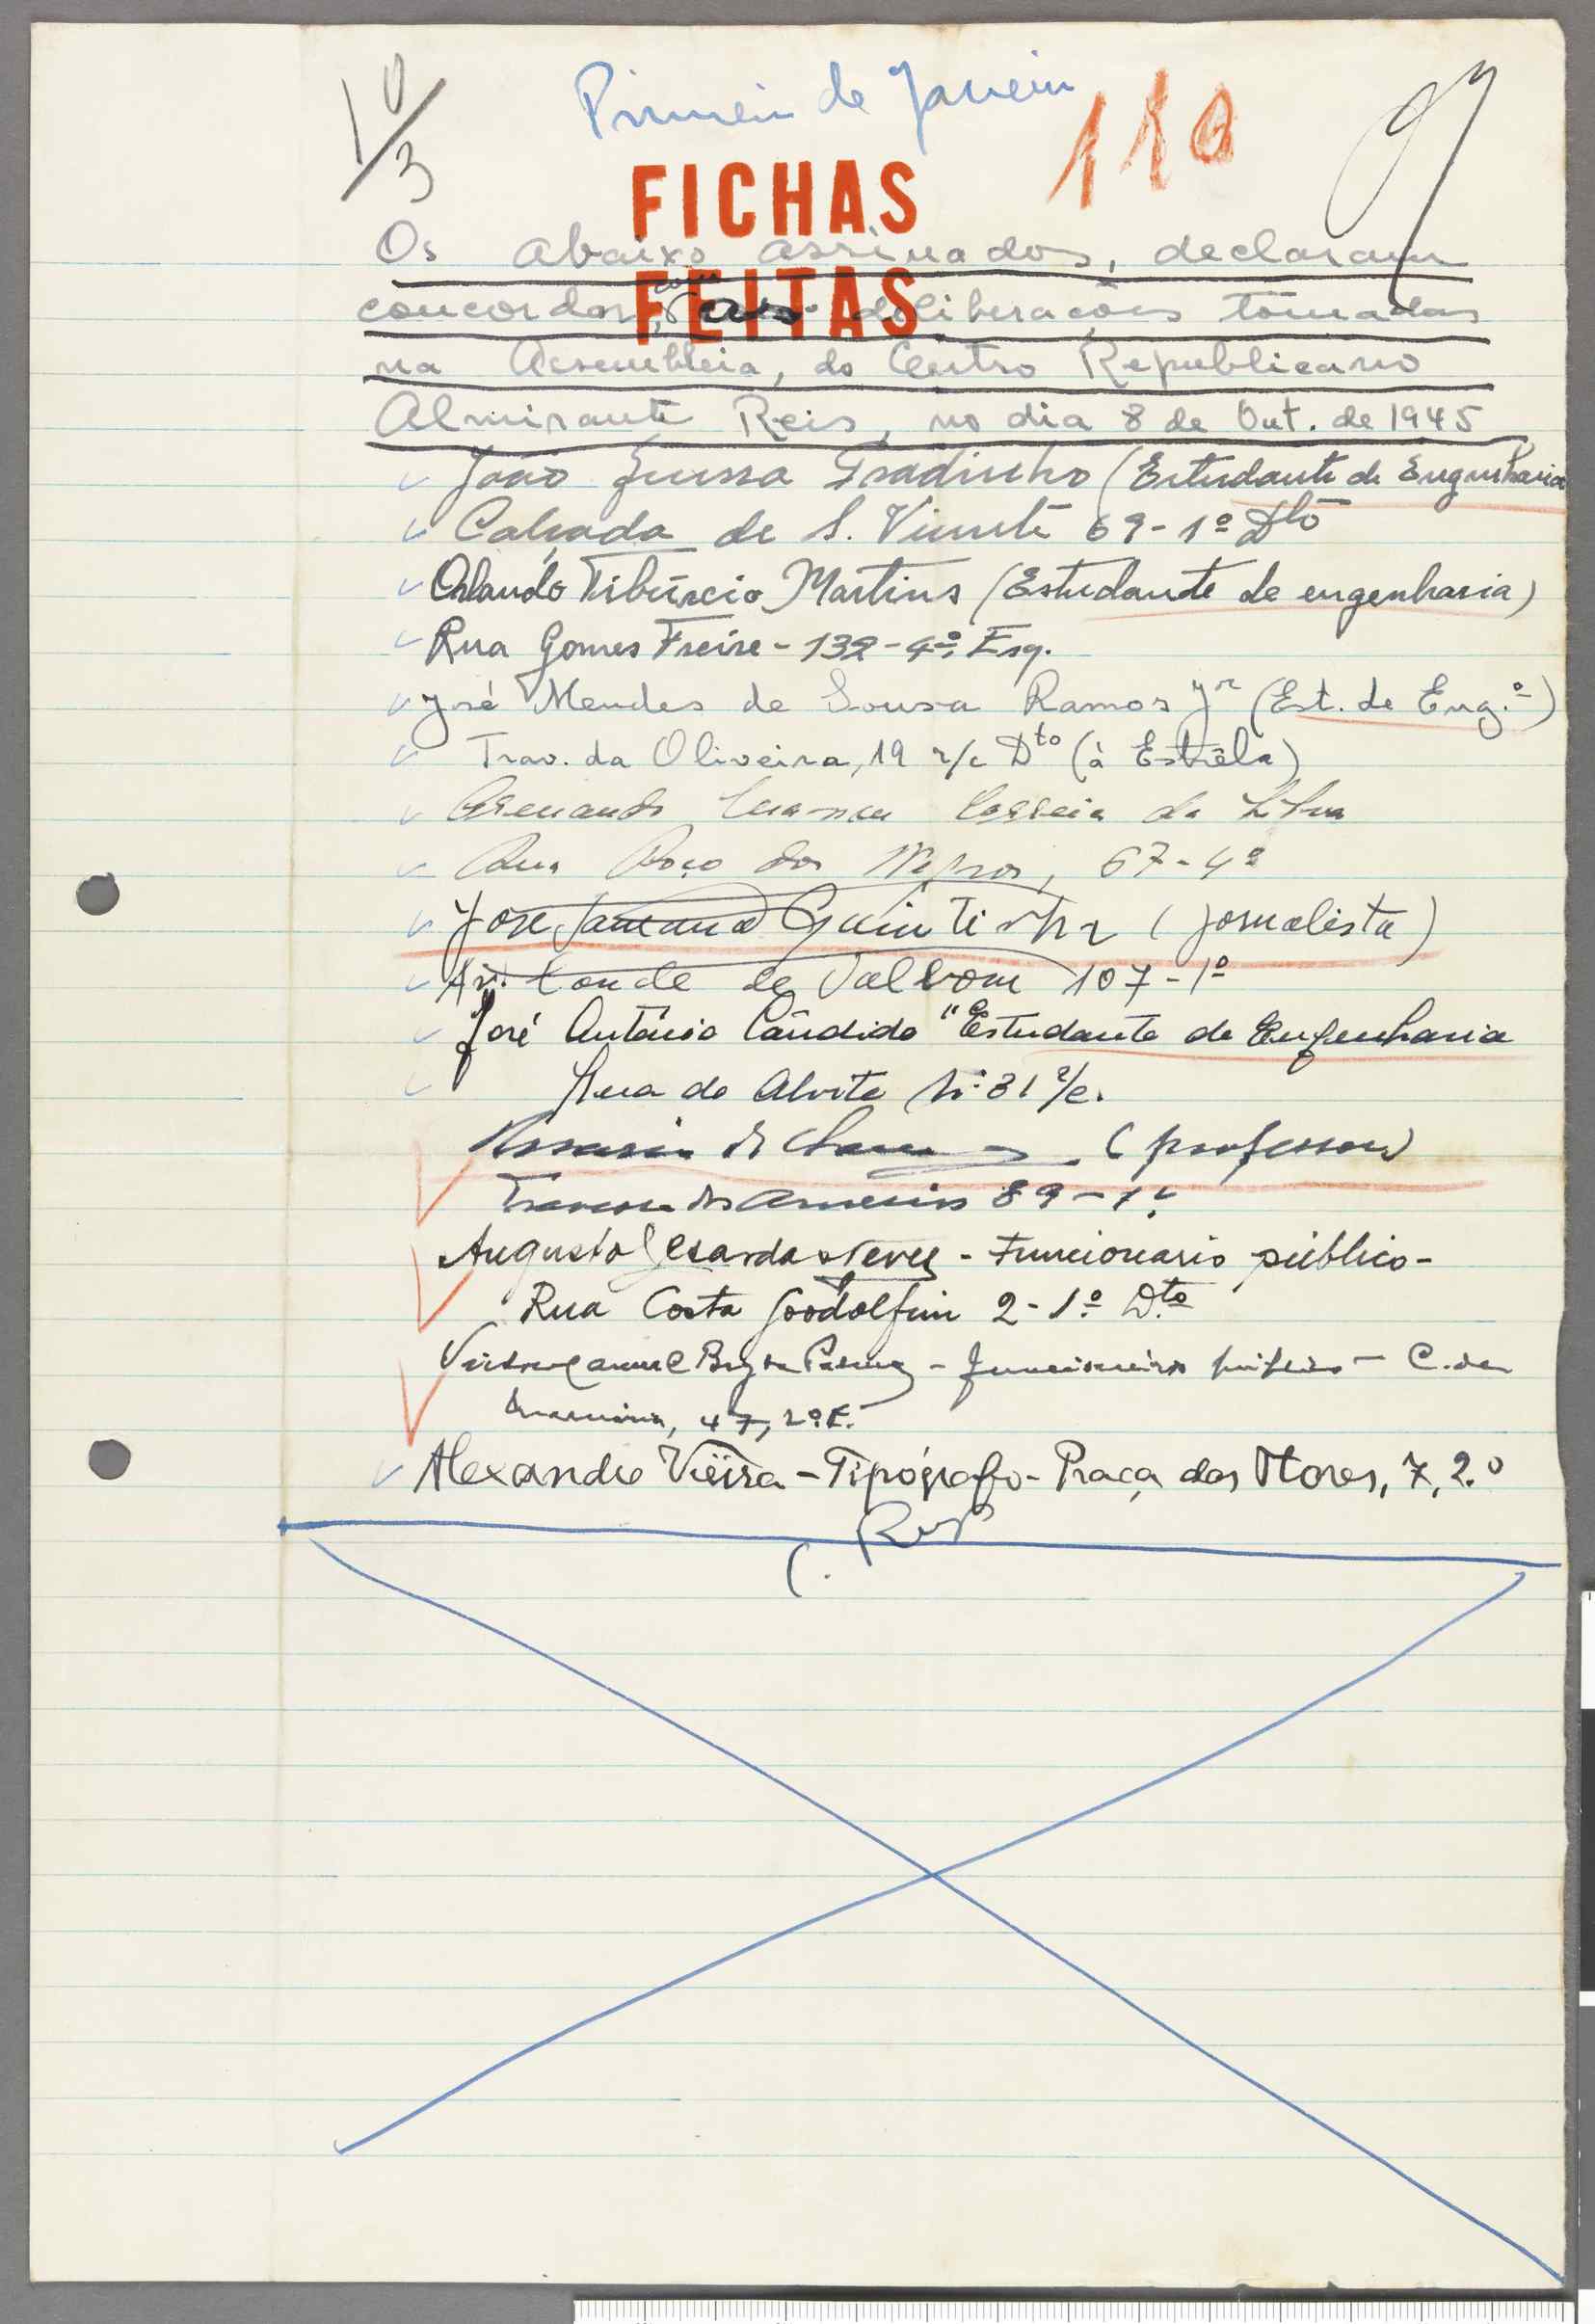 10/3
Primeiro de Janeiro
110
97
FICHAS
FEITAS
Os abaixo assinados, declaram
concordar, com as deliberações tomadas
na Assembleia, do Centro Republicano
Almirante Reis, no dia 8 de Out. de 1945
João Gradinho (Estudante de Engenharia
Calçada de S. Vicente 69-1º Dtº
Orlando Tibúrcio Martins (Estudante de engenharia)
Rua Gomes Freire - 132-4º Esq.
José Mendes de Sousa Ramos Jr (Est. de Eng.ª)
Trav. da Oliveira, 19 r/c Dto (à Estrêla)
Armando Correia da Silva
Rua Poço dos Negros, 67-4º
José Quintinha (jornalista)
Av. Conde de Valbom 107-1º
José António Cândido "Estudante de Engenharia
Rua do Alvito Nº 31 r/c.
(professor)
Travessa 89-1º
Augusto Cesar das Neves - Funcionario público -
Rua Costa Goodolfim 2-1º Dto
- funcionário público - C. da
47, 2º E.
Alexandre Vieira - Tipógrafo - Praça das Flores, 7, 2.º